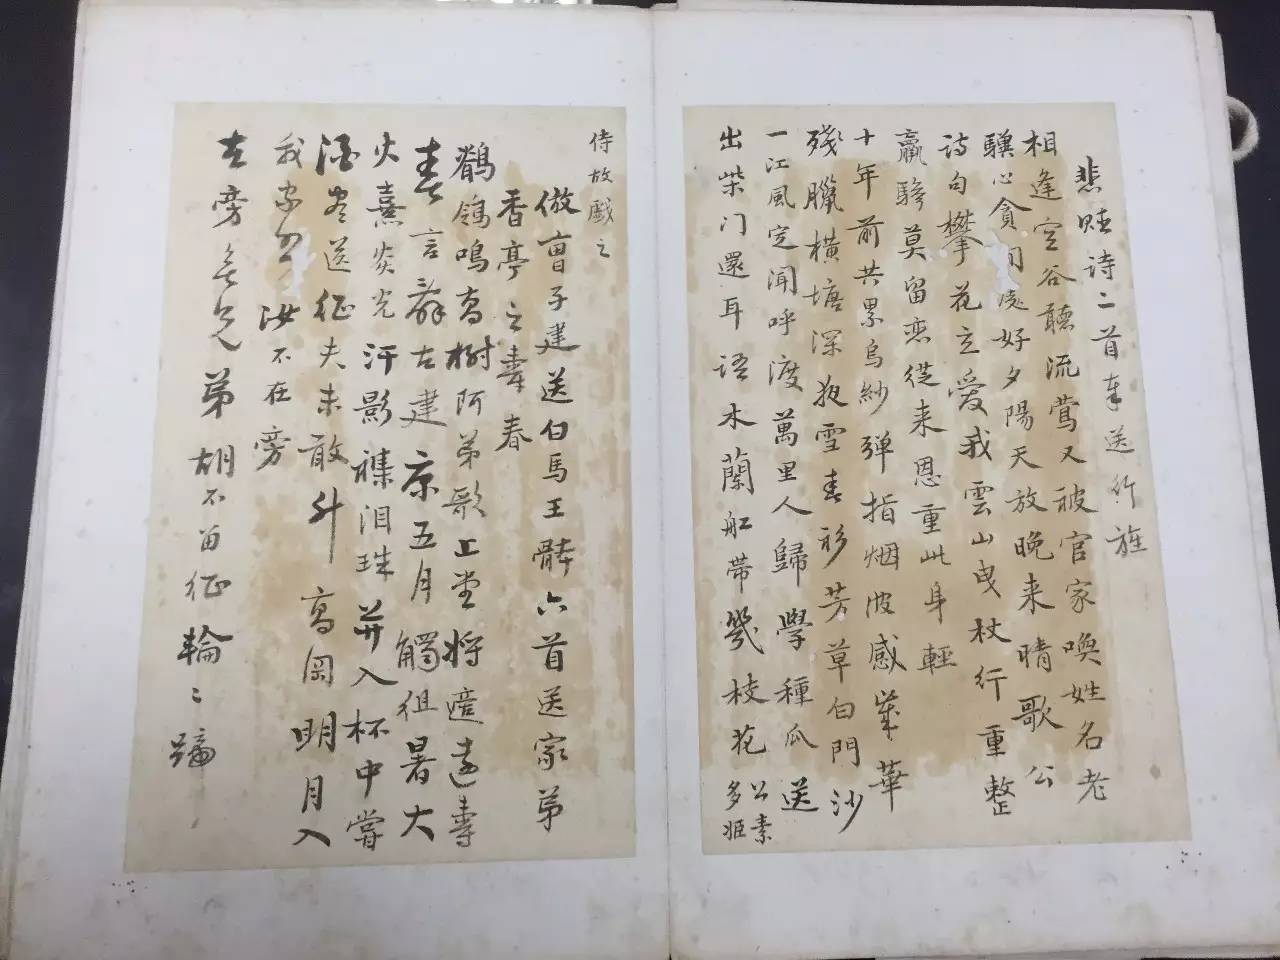 悲賖诗二首奉送行旌
相逢空谷聽流莺又被官家喚姓名老
驥心貪闲處好夕陽天放晚来晴歌公
诗句攀花立爱我雲山曳杖行重整
羸驂莫留恋從来恩重此身輕
十年前共累烏紗弹指烟波感岁華
殘臘横塘深夜雪春衫芳草白門沙
一江風定聞呼渡萬里人歸學種瓜送
出柴门還耳语木蘭舡带幾枝花公素
多姬
侍故戲之
倣曹子建送白馬王體六首送家弟
香亭之壽春
鶺鴒鳴高樹阿弟歌上堂將適遠壽
春言辭古建康五月觸徂暑大
火熹炎光汗影雜泪珠并入杯中嘗
酒盡送征夫未敢升高岡明月入
我室 汝不在旁
左旁無兄弟胡不苗征輪二蹄